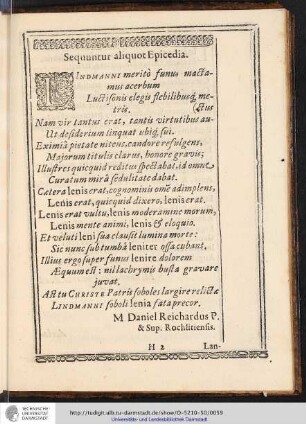 Sequuntur aliquot Epicedia.
LINDMANNI meritò funus mactamus acerbum
Luctisonis elegis flebilibusq́; metris.
Nam vir tantus erat, tantis virtutibus auctus
Ut desiderium linquat ubiq́; sui.
Eximiâ pietate nitens, candore refulgens,
Majorum titulis clarus, honore gravis;
Illustres quicquid reditus spectabat, id omne
Curatum mirâ sedulitate dabat.
Cætera lenis erat, cognominis omẽ adimplens,
Lenis erat, quicquid dixero, lenis erat.
Lenis erat vultu, lenis moderamine morum,
Lenis mente animi, lenis & eloquio.
Et veluti leni sua clausit lumina morte:
Sic nunc sub tumbâ leniter ossa cubant,
Illius ergò super funus lenire dolorem
Æquum est: nil lachrymis busta gravare
juvat.
Ast tu CHRISTE Patris soboles largire relictæ
LINDMANNI soboli lenia fata precor.
M Daniel Reichardus P.
& Sup. Rochlitensis.
H 2 Lan-
TECHNISCHE
UNIVERSITÄT
DARMSTADT
http://tudigit.ulb.tu-darmstadt.de/show/D-5210-50/0059
Universitäts- und Landesbibliothek Darmstadt